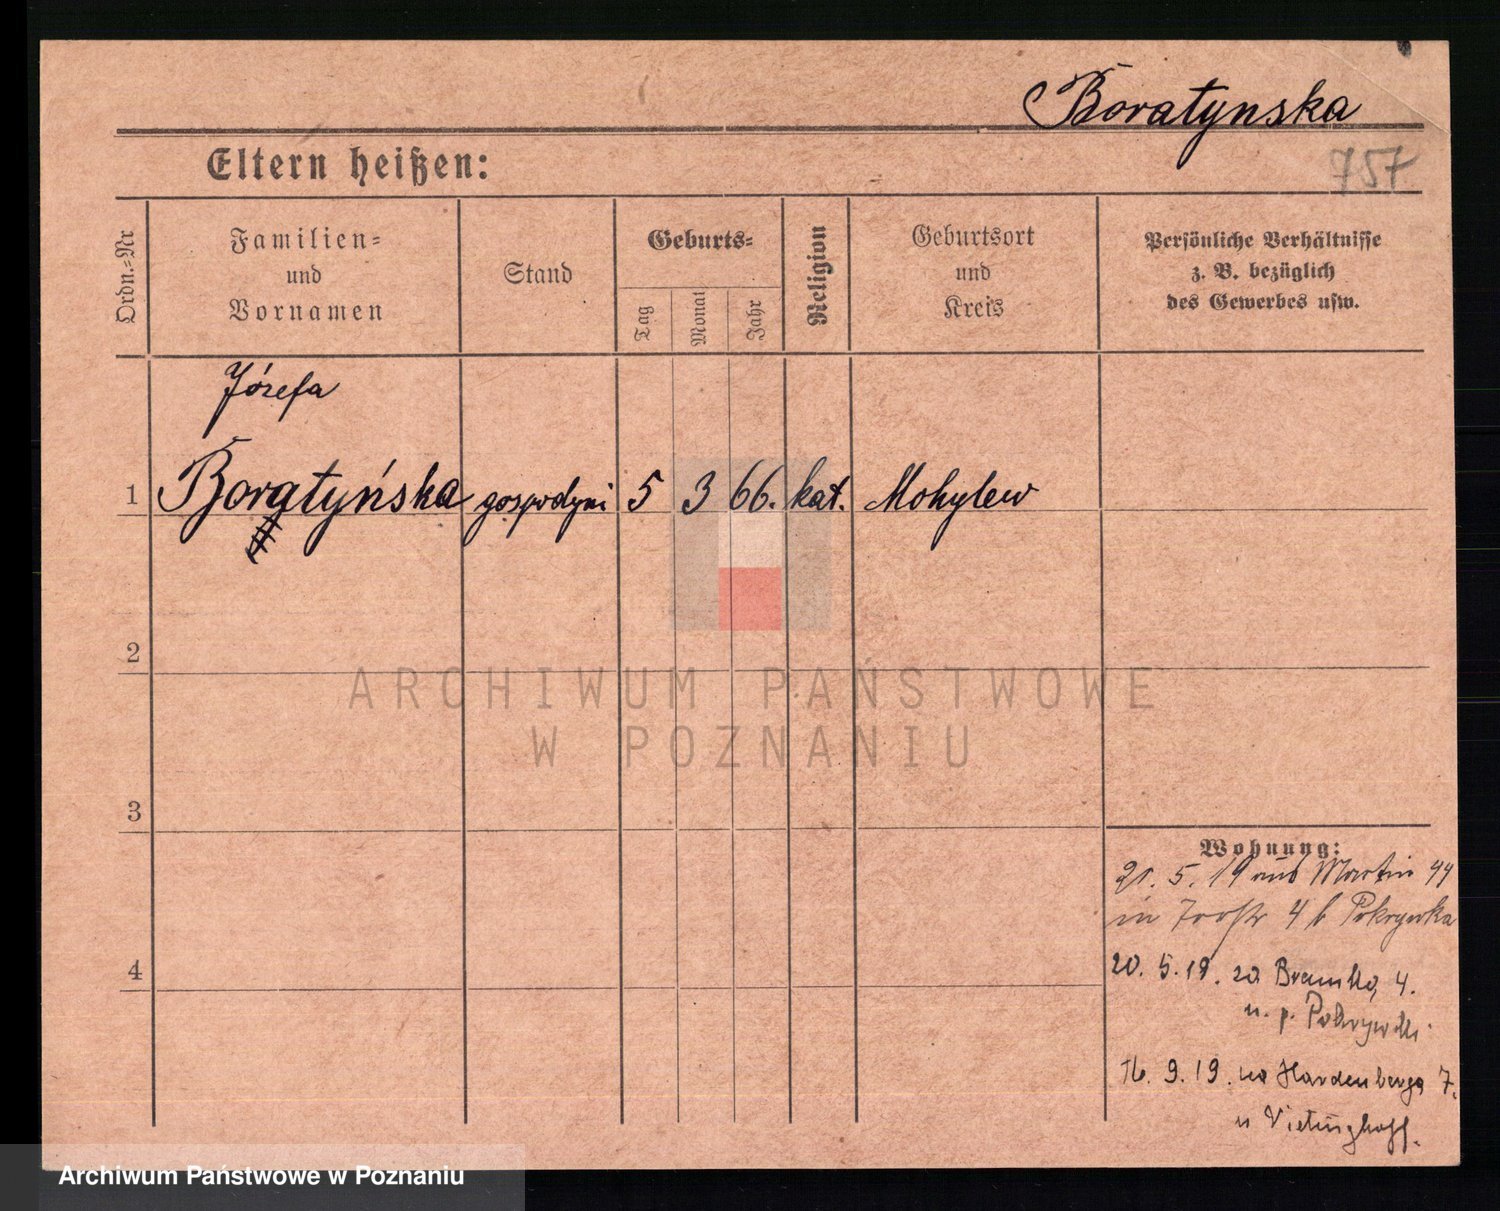 Boratynska
757
Eltern heißen:
Ordn.-Nr
Familien-
und
Vornamen
Stand
Geburts-
Tag
Monat
Jahr
Religion
Geburtsort
und
Kreis
Persönliche Verhältnisse
z. B. bezüglich
des Gewerbes usw.
Józefa
1 Boratyńska gospodyni 5 3 66. kat. Mohylew
2
ARCHIWUM PAŃSTWOWE
W POZNANIU
3
Wohnung:
21. 5. 19 aus Martin 44
in 4 b Pokrywka
4
20. 5. 19. na Bramka 4.
u. p. Pokrywki
16. 9. 19. na Hardenberga 7.
u Vietinghoff.
Archiwum Państwowe w Poznaniu